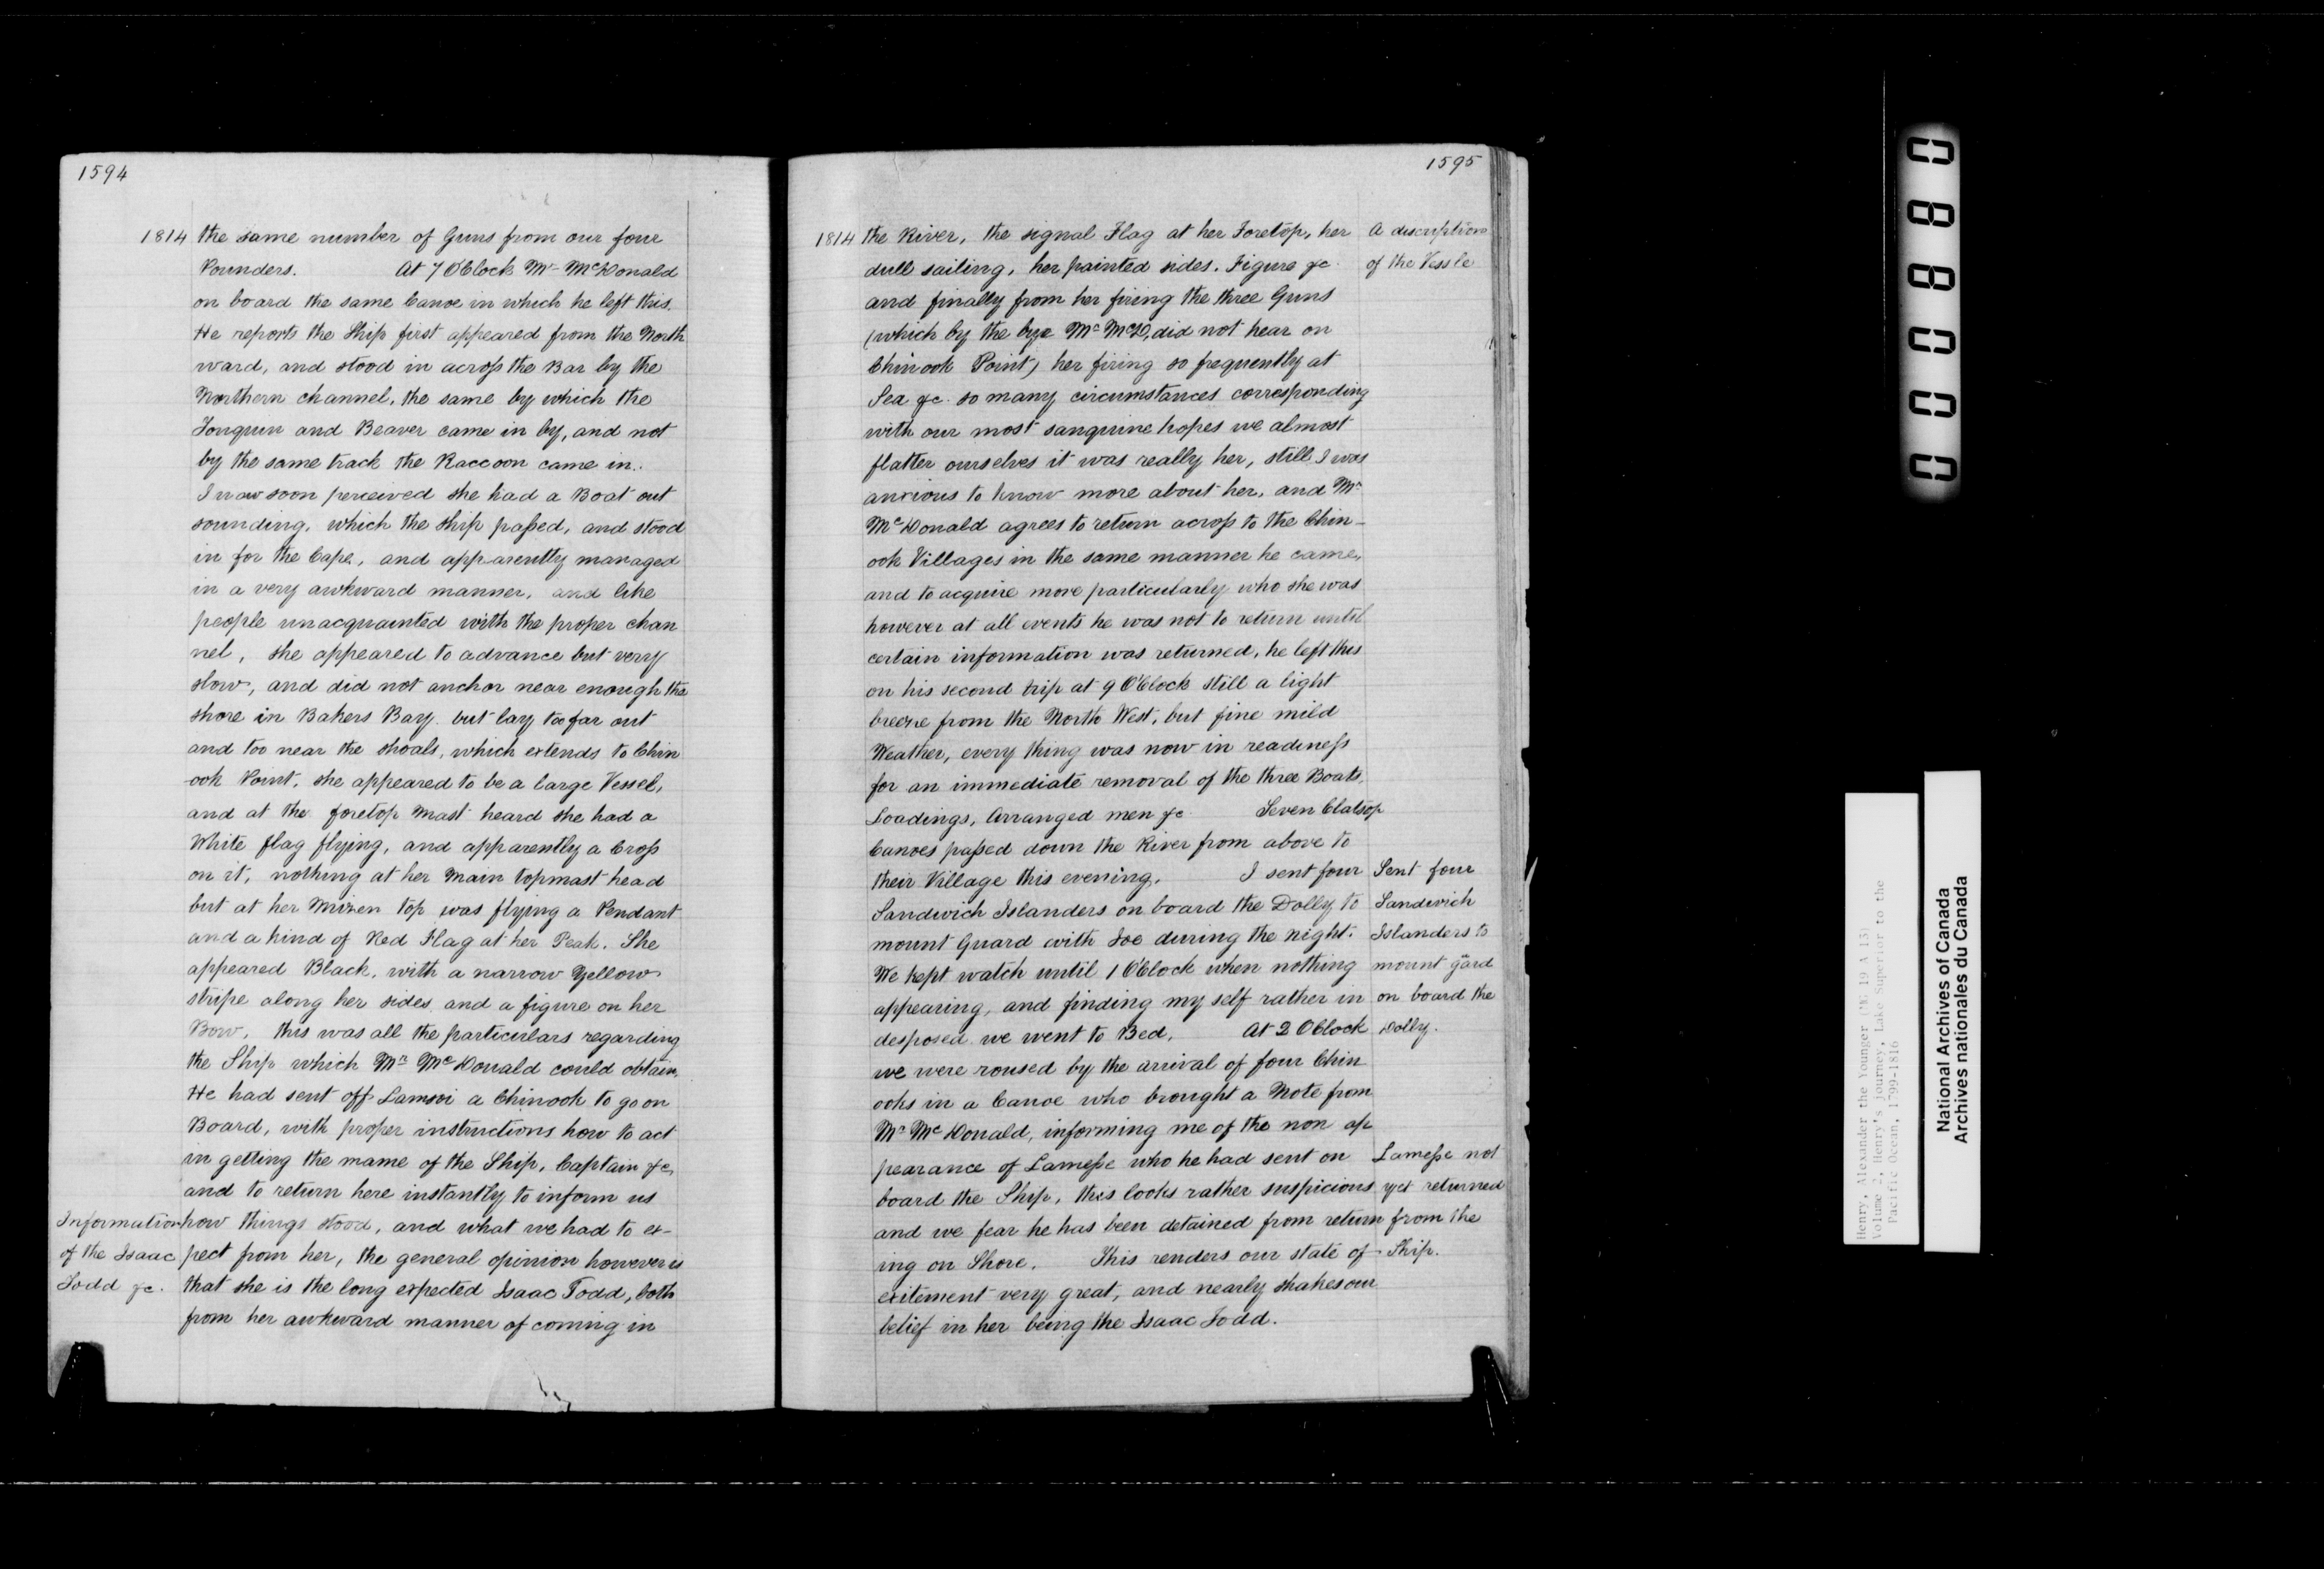 1594
1814 the same number of Guns from our four
Pounders. At 7 O'Clock Mr McDonald
on board the same Canoe in which he left this.
He reports the Ship first appeared from the North
ward, and stood in across the Bar by the
Northern channel, the same by which the
Tonquin and Beaver came in by, and not
by the same track the Raccoon came in.
I now soon perceived she had a Boat out
sounding, which the ship passed, and stood
in for the Cape, and apparently managed
in a very awkward manner, and like
people unacquainted with the proper chan
nel, she appeared to advance but very
slow, and did not anchor near enough the
shore in Bakers Bay. but lay too far out
and too near the shoals, which extends to Chin
ook Point. she appeared to be a large Vessel,
and at the foretop mast heard she had a
White flag flying, and apparently a Cross
on it, nothing at her main topmast head
but at her Mizen top was flying a Pendant
and a kind of Red Flag at her Peak. She
appeared Black, with a narrow Yellow
stripe along her sides and a figure on her
Bow, this was all the particulars regarding
the Ship which Mr McDonald could obtain.
He had sent off Lamsoi a Chinook to go on
Board, with proper instructions how to act
in getting the mame of the Ship, Captain &c,
and to return here instantly to inform us
how things stood, and what we had to ex-
pect from her, the general opinion however is
that she is the long expected Isaac Todd, both
from her awkward manner of coming in
Information
of the Isaac
Todd &c.
1595
1814 the River, the signal Flag at her Foretop, her
dull sailing, her painted sides. Figure &c
and finally from her firing the three Guns
(which by the bye Mr McD, did not hear on
Chinook Point) her firing so frequently at
Sea &c. so many circumstances corresponding
with our most sanguine hopes we almost
flatter ourselves it was really her, still I was
anxious to know more about her, and Mr
McDonald agrees to return across to the Chin-
ook Villages in the same manner he came,
and to acquire more particularly who she was
however at all events he was not to return until
certain information was returned, he left this
on his second trip at 9 O'Clock still a light
breeze from the North West, but fine mild
Weather, every thing was now in readiness
for an immediate removal of the three Boats,
Loadings, Arranged men &c Seven Clatsop
Canoes passed down the River from above to
their Village this evening. I sent four
Sandwich Islanders on board the Dolly to
mount Guard with Joe during the night.
We kept watch until 1 O'Clock when nothing
appearing, and finding my self rather in
desposed we went to Bed. At 2 OClock
we were roused by the arrival of four Chin
ooks in a Canoe who brought a Note from
Mr McDonald, informing me of the non ap
pearance of Lamesse who he had sent on
board the Ship, this looks rather suspicious
and we fear he has been detained from return
ing on Shore. This renders our state of
exitement very great, and nearly shakes our
belief in her being the Isaac Todd.
A discription
of the Vessle
Sent four
Sandwich
Islanders to
mount gard
on board the
Dolly.
Lamesse not
yet returned
from the
Ship.
0 0 0 8 8 0
Henry, Alexander the Younger (MG 19 A 13)
Volume 2, Henry's journey, Lake Superior to the
Pacific Ocean, 1799-1816
National Archives of Canada
Archives nationales du Canada